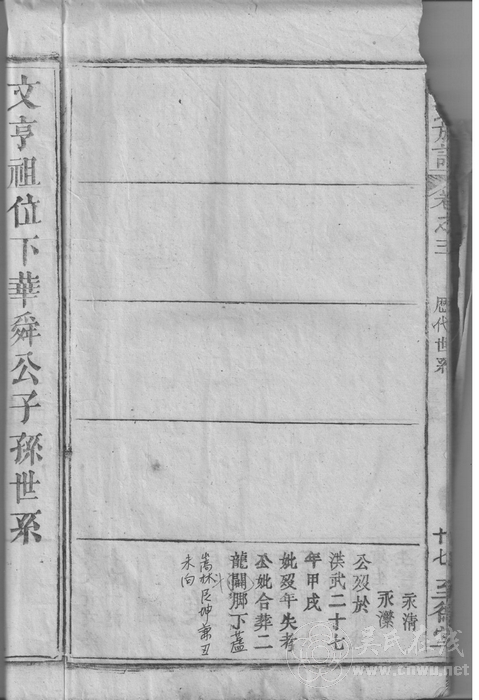 族譜
卷之三
歷代世系
十七
至德堂
永清
永灤
公歿於
洪武二十七
年甲戌
妣歿年失考
公妣合葬二
龍關脚下蓋
嵩林艮坤兼丑
未向
文亨祖位下華舜公子孫世系
吴氏在线
www.cnwu.net